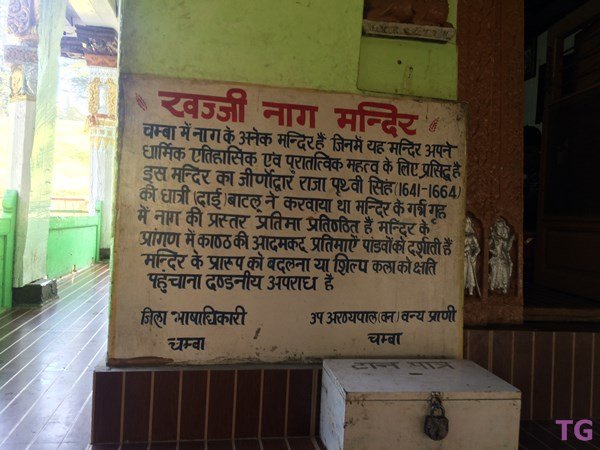 खज्जी नाग मन्दिर
चम्बा में नाग के अनेक मन्दिर हैं जिनमें यह मन्दिर अपने
धार्मिक एतिहासिक एवं पुरातत्विक महत्व के लिए प्रसिद्ध है
इस मन्दिर का जीर्णोद्वार राजा पृथ्वी सिंह (1641-1664)
की धात्री (दाई) बाटलू ने करवाया था मन्दिर के गर्भ गृह
में नाग की प्रस्तर प्रतिमा प्रतिष्ठित है मन्दिर के
प्रांगण में काष्ठ की आदमकद प्रतिमाएं पांडवों को दर्शाती हैं
मन्दिर के प्रारूप को बदलना या शिल्प कला को क्षति
पहुंचाना दण्डनीय अपराध है
जिला भाषाधिकारी
चम्बा
उप अरण्यपाल (वन) वन्य प्राणी
चम्बा
दान पात्र
TG